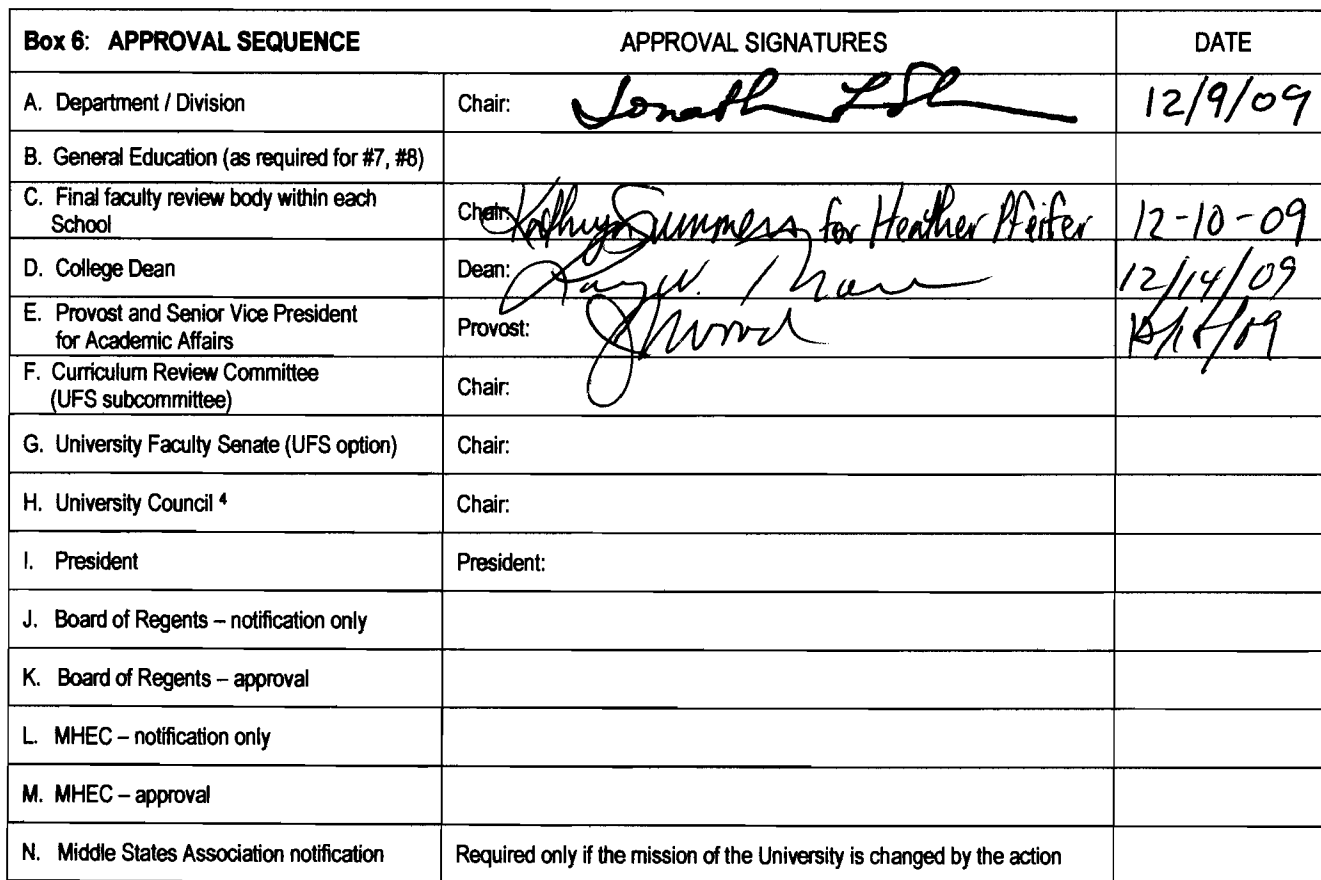 Box 6: APPROVAL SEQUENCE APPROVAL SIGNATURES DATE
A. Department / Division Chair: 12/9/09
B. General Education (as required for #7, #8)
C. Final faculty review body within each
School Chair: Kathryn Summers for Heather Pfeifer 12-10-09
D. College Dean Dean: 12/14/09
E. Provost and Senior Vice President
for Academic Affairs Provost:
F. Curriculum Review Committee
(UFS subcommittee) Chair:
G. University Faculty Senate (UFS option) Chair:
H. University Council 4 Chair:
I. President President:
J. Board of Regents – notification only
K. Board of Regents – approval
L. MHEC – notification only
M. MHEC – approval
N. Middle States Association notification Required only if the mission of the University is changed by the action